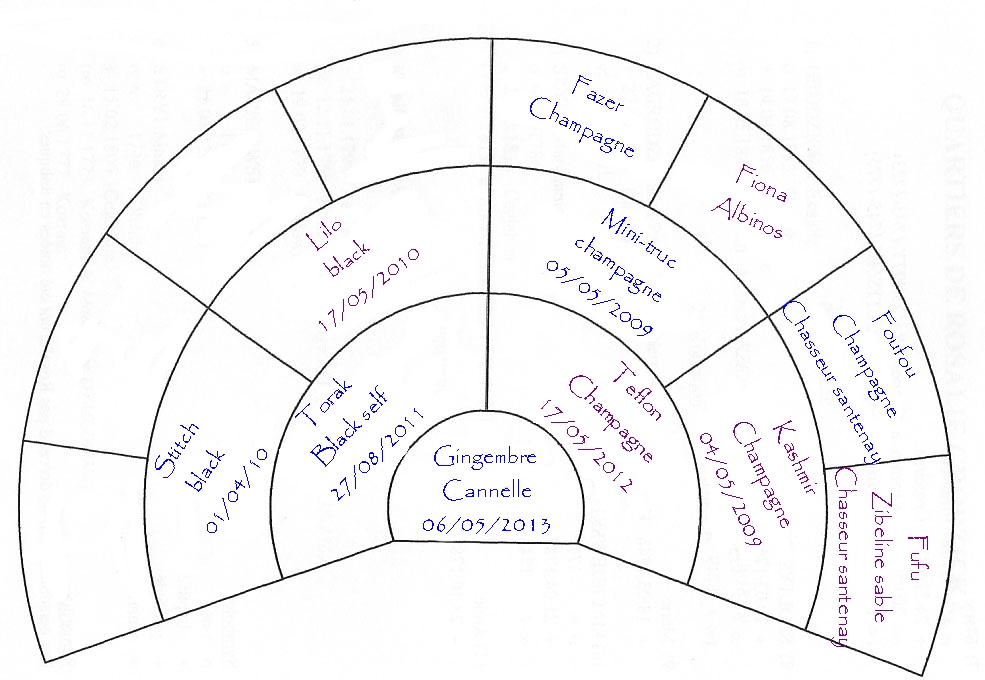 Gingembre
Cannelle
06/05/2013
Torak
Black self
27/08/2011
Teflon
Champagne
17/05/2012
Stitch
black
01/04/10
Lilo
black
17/05/2010
Mini-truc
champagne
05/05/2009
Kashmir
Champagne
04/05/2009
Fazer
Champagne
Fiona
Albinos
Foufou
Champagne
Chasseur santenay
Fufu
Zibeline sable
Chasseur santenay